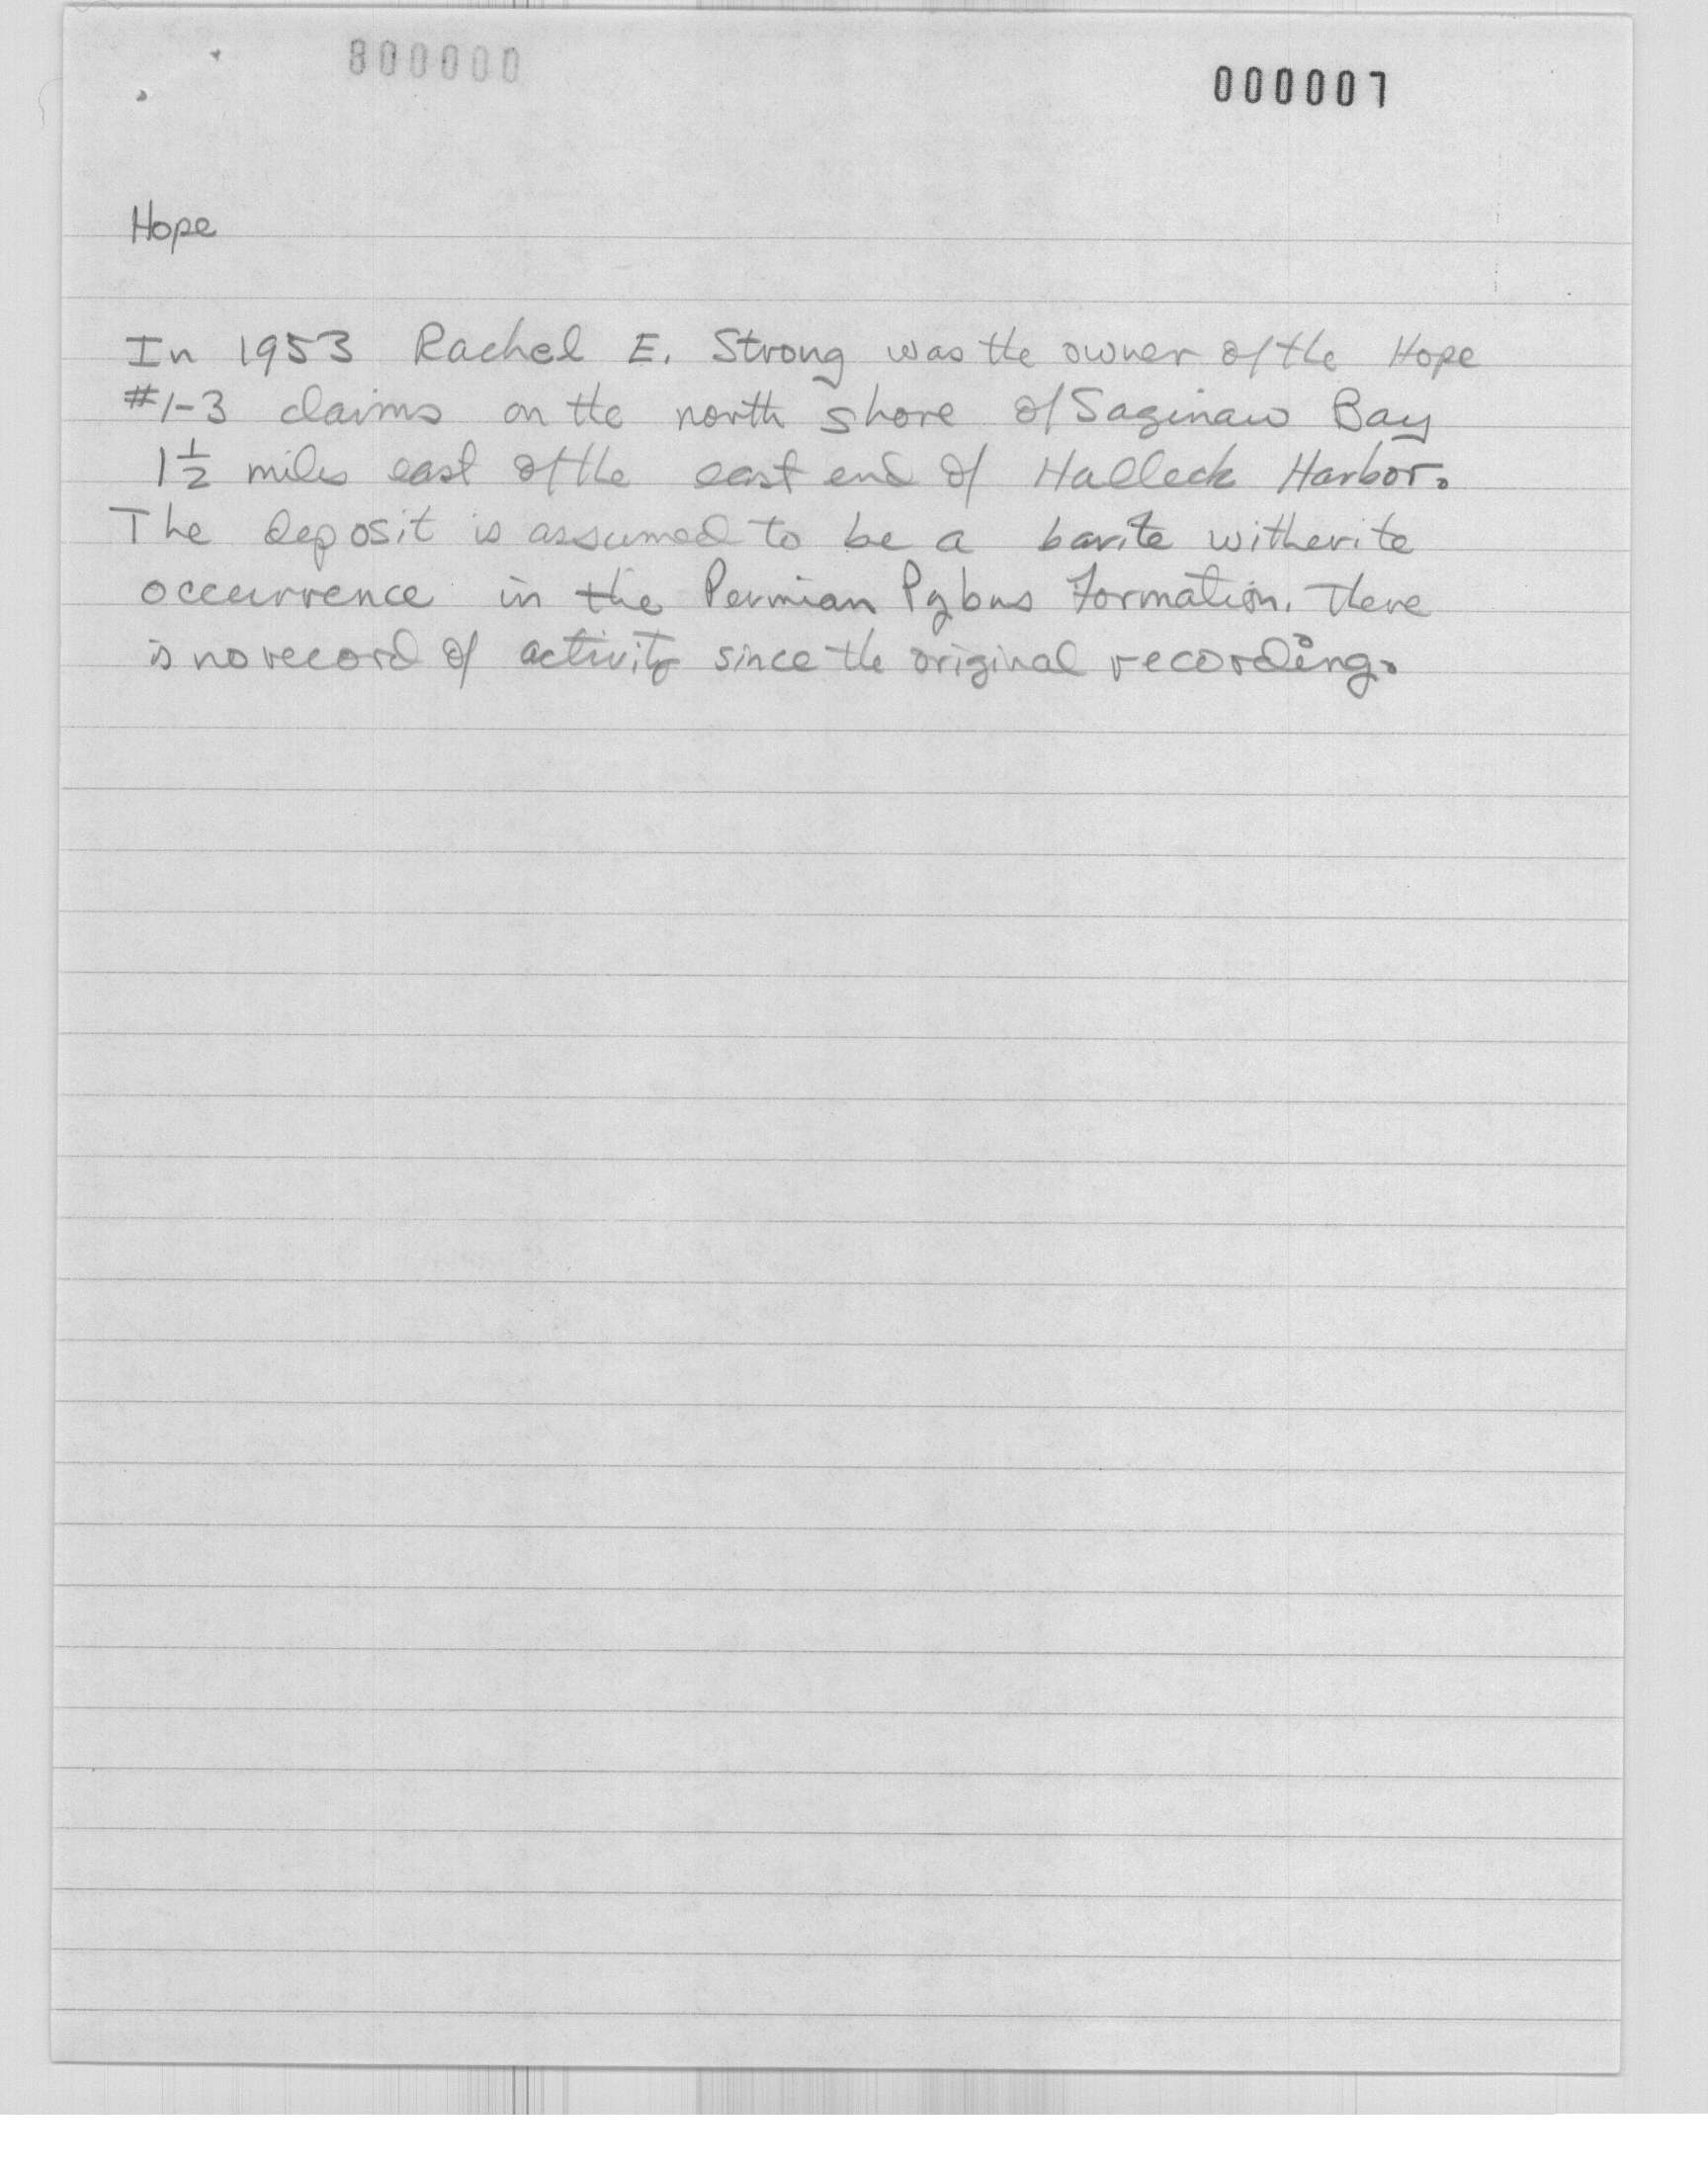 800000
000007
Hope
In 1953 Rachel E. Strong was the owner of the Hope
#1-3 claims on the north shore of Saginaw Bay
1 1/2 miles east of the east end of Halleck Harbor.
The deposit is assumed to be a barite witherite
occurrence in the Permian Pybus Formation. There
is no record of activity since the original recording.